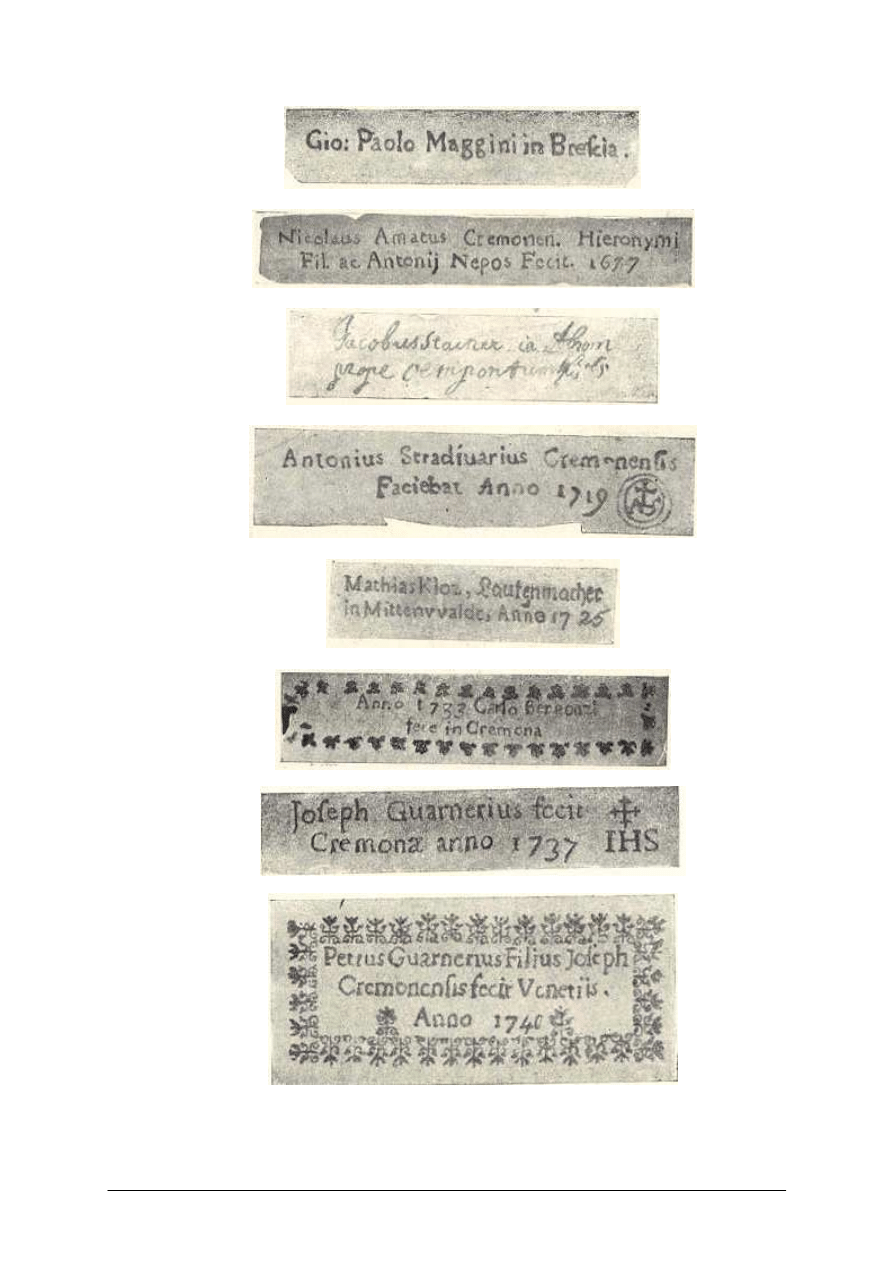 Gio: Paolo Maggini in Breſcia.
Nicolaus Amatus Cremonen. Hieronymi
Fil. ac Antonij Nepos Fecit. 1677
Jacobus Stainer in Absom
prope Oenipontum
Antonius Stradiuarius Cremonenſis
Faciebat Anno 1719
Mathias Kloz, Lautenmacher
in Mittenvvalde, Anno 17 25
Anno 1733 Carlo Bergonzi
fece in Cremona
Joſeph Guarnerius fecit
Cremonæ anno 1737 IHS
Petrus Guarnerius Filius Joſeph
Cremonenſis fecit Venetiis.
Anno 1740